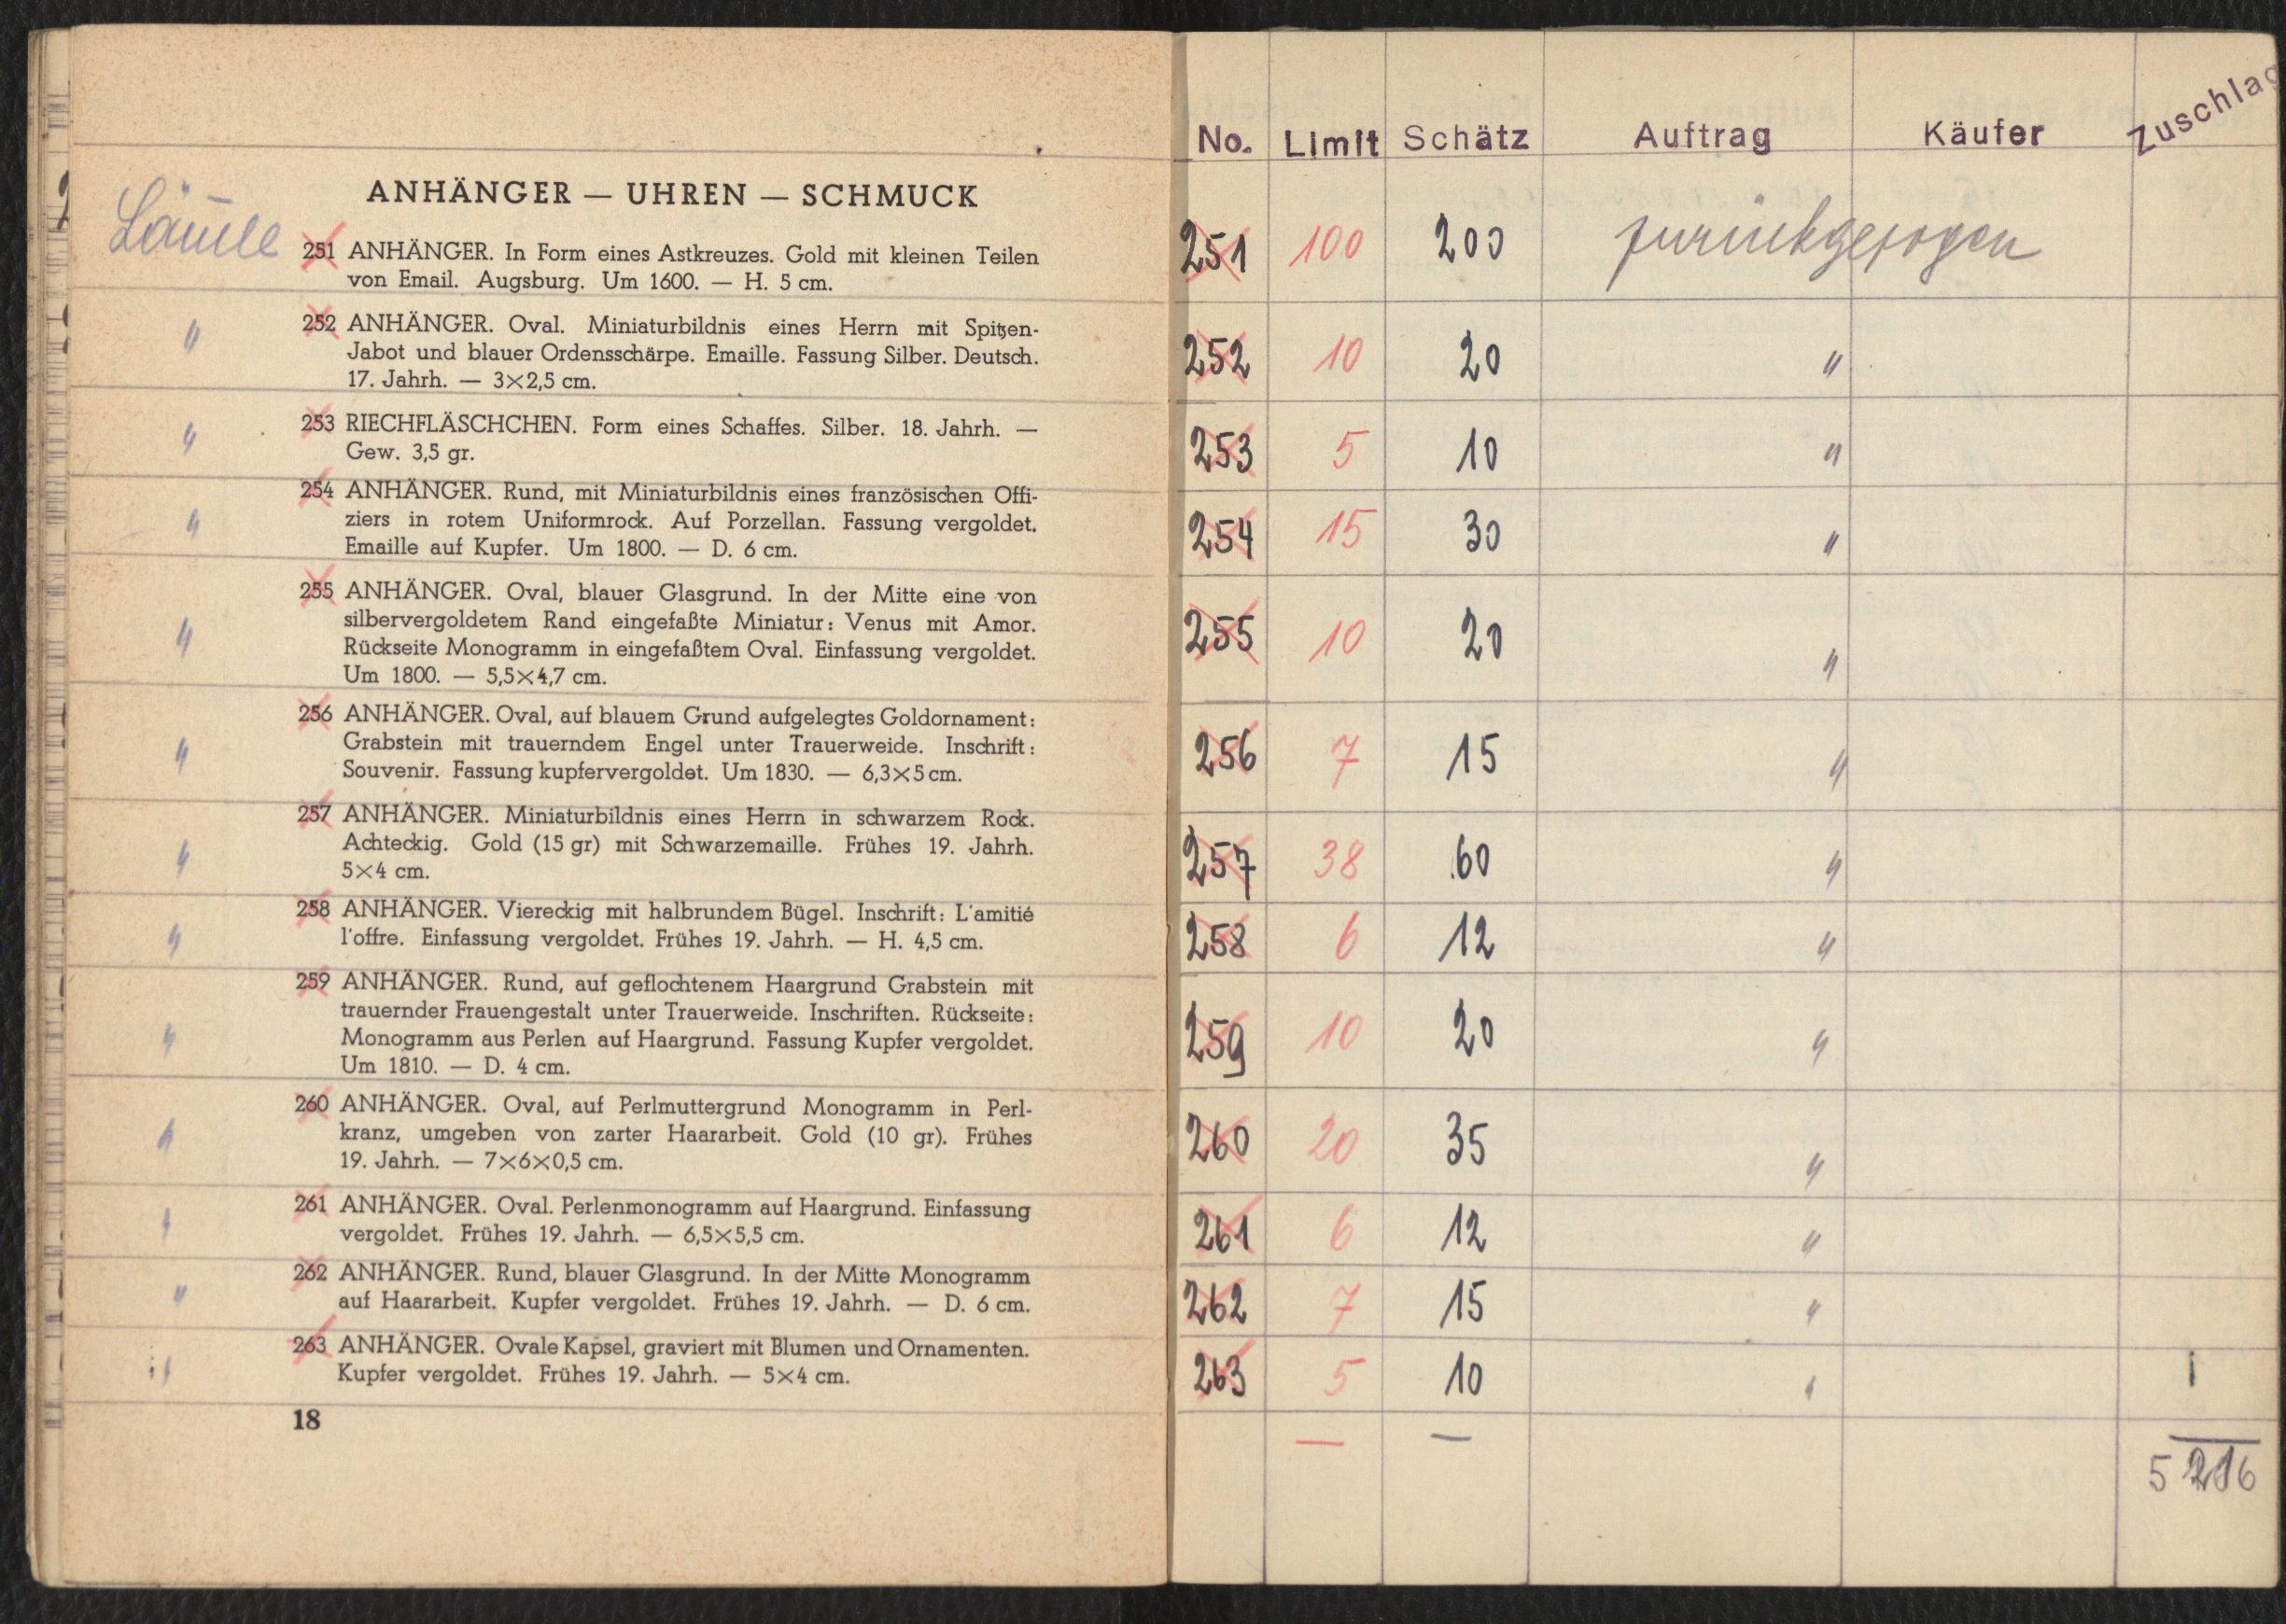 ANHÄNGER — UHREN — SCHMUCK
251 ANHÄNGER. In Form eines Astkreuzes. Gold mit kleinen Teilen
von Email. Augsburg. Um 1600. — H. 5 cm.
"
252 ANHÄNGER. Oval. Miniaturbildnis eines Herrn mit Spitzen-
Jabot und blauer Ordensschärpe. Emaille. Fassung Silber. Deutsch.
17. Jahrh. — 3×2,5 cm.
"
253 RIECHFLÄSCHCHEN. Form eines Schaffes. Silber. 18. Jahrh. —
Gew. 3,5 gr.
"
254 ANHÄNGER. Rund, mit Miniaturbildnis eines französischen Offi-
ziers in rotem Uniformrock. Auf Porzellan. Fassung vergoldet.
Emaille auf Kupfer. Um 1800. — D. 6 cm.
"
255 ANHÄNGER. Oval, blauer Glasgrund. In der Mitte eine von
silbervergoldetem Rand eingefaßte Miniatur: Venus mit Amor.
Rückseite Monogramm in eingefaßtem Oval. Einfassung vergoldet.
Um 1800. — 5,5×4,7 cm.
"
256 ANHÄNGER. Oval, auf blauem Grund aufgelegtes Goldornament:
Grabstein mit trauerndem Engel unter Trauerweide. Inschrift:
Souvenir. Fassung kupfervergoldet. Um 1830. — 6,3×5 cm.
"
257 ANHÄNGER. Miniaturbildnis eines Herrn in schwarzem Rock.
Achteckig. Gold (15 gr) mit Schwarzemaille. Frühes 19. Jahrh.
5×4 cm.
"
258 ANHÄNGER. Viereckig mit halbrundem Bügel. Inschrift: L'amitié
l'offre. Einfassung vergoldet. Frühes 19. Jahrh. — H. 4,5 cm.
"
259 ANHÄNGER. Rund, auf geflochtenem Haargrund Grabstein mit
trauernder Frauengestalt unter Trauerweide. Inschriften. Rückseite:
Monogramm aus Perlen auf Haargrund. Fassung Kupfer vergoldet.
Um 1810. — D. 4 cm.
"
260 ANHÄNGER. Oval, auf Perlmuttergrund Monogramm in Perl-
kranz, umgeben von zarter Haararbeit. Gold (10 gr). Frühes
19. Jahrh. — 7×6×0,5 cm.
"
261 ANHÄNGER. Oval. Perlenmonogramm auf Haargrund. Einfassung
vergoldet. Frühes 19. Jahrh. — 6,5×5,5 cm.
"
262 ANHÄNGER. Rund, blauer Glasgrund. In der Mitte Monogramm
auf Haararbeit. Kupfer vergoldet. Frühes 19. Jahrh. — D. 6 cm.
"
263 ANHÄNGER. Ovale Kapsel, graviert mit Blumen und Ornamenten.
Kupfer vergoldet. Frühes 19. Jahrh. — 5×4 cm.
"
18
No. Limit Schätz Auftrag Käufer Zuschlag
251 100 200 zurückgezogen
252 10 20 "
253 5 10 "
254 15 30 "
255 10 20 "
256 7 15 "
257 38 60 "
258 6 12 "
259 10 20 "
260 20 35 "
261 6 12 "
262 7 15 "
263 5 10 "
— —